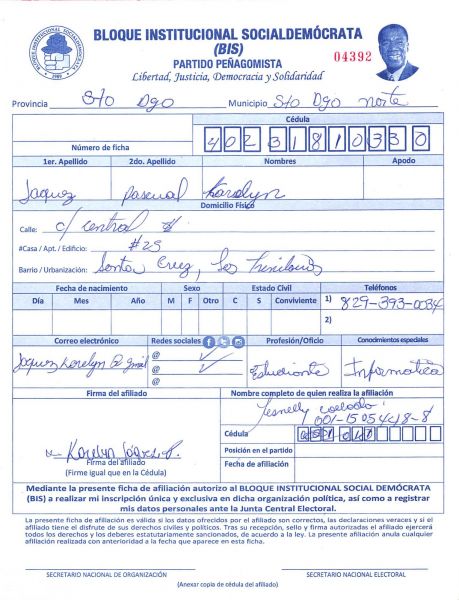 BLOQUE INSTITUCIONAL SOCIALDEMÓCRATA
(BIS)
PARTIDO PEÑAGOMISTA
Libertad, Justicia, Democracia y Solidaridad
04392
Provincia Sto Dgo Municipio Sto Dgo norte
Cédula
Número de ficha 402 3181033 0
1er. Apellido 2do. Apellido Nombres Apodo
Jaquez Pascual Karelyn
Domicilio Físico
Calle: c/ central
#Casa / Apt. / Edificio: #25
Barrio / Urbanización: Santa Cruz, Los Trinitarios
Fecha de nacimiento Sexo Estado Civil Teléfonos
Día Mes Año M F Otro C S Conviviente 1) 829-393-0034
2)
Correo electrónico Redes sociales Profesión/Oficio Conocimientos especiales
@
@
@
Jaquez Karelyn @ gmail Estudiante Informatica
Firma del afiliado Nombre completo de quien realiza la afiliación
001-1505448-8
Cédula
Posición en el partido
Fecha de afiliación
Firma del afiliado
(Firme igual que en la Cédula)
Mediante la presente ficha de afiliación autorizo al BLOQUE INSTITUCIONAL SOCIAL DEMÓCRATA
(BIS) a realizar mi inscripción única y exclusiva en dicha organización política, así como a registrar
mis datos personales ante la Junta Central Electoral.
La presente ficha de afiliación es válida si los datos ofrecidos por el afiliado son correctos, las declaraciones veraces y si el
afiliado tiene el disfrute de sus derechos civiles y políticos. Tras su recepción, sello y firma autorizadas el afiliado ejercerá
todos los derechos y los deberes estatutariamente sancionados, de acuerdo a la ley. La presente afiliación anula cualquier
afiliación realizada con anterioridad a la fecha que aparece en esta ficha.
SECRETARIO NACIONAL DE ORGANIZACIÓN SECRETARIO NACIONAL ELECTORAL
(Anexar copia de cédula del afiliado)